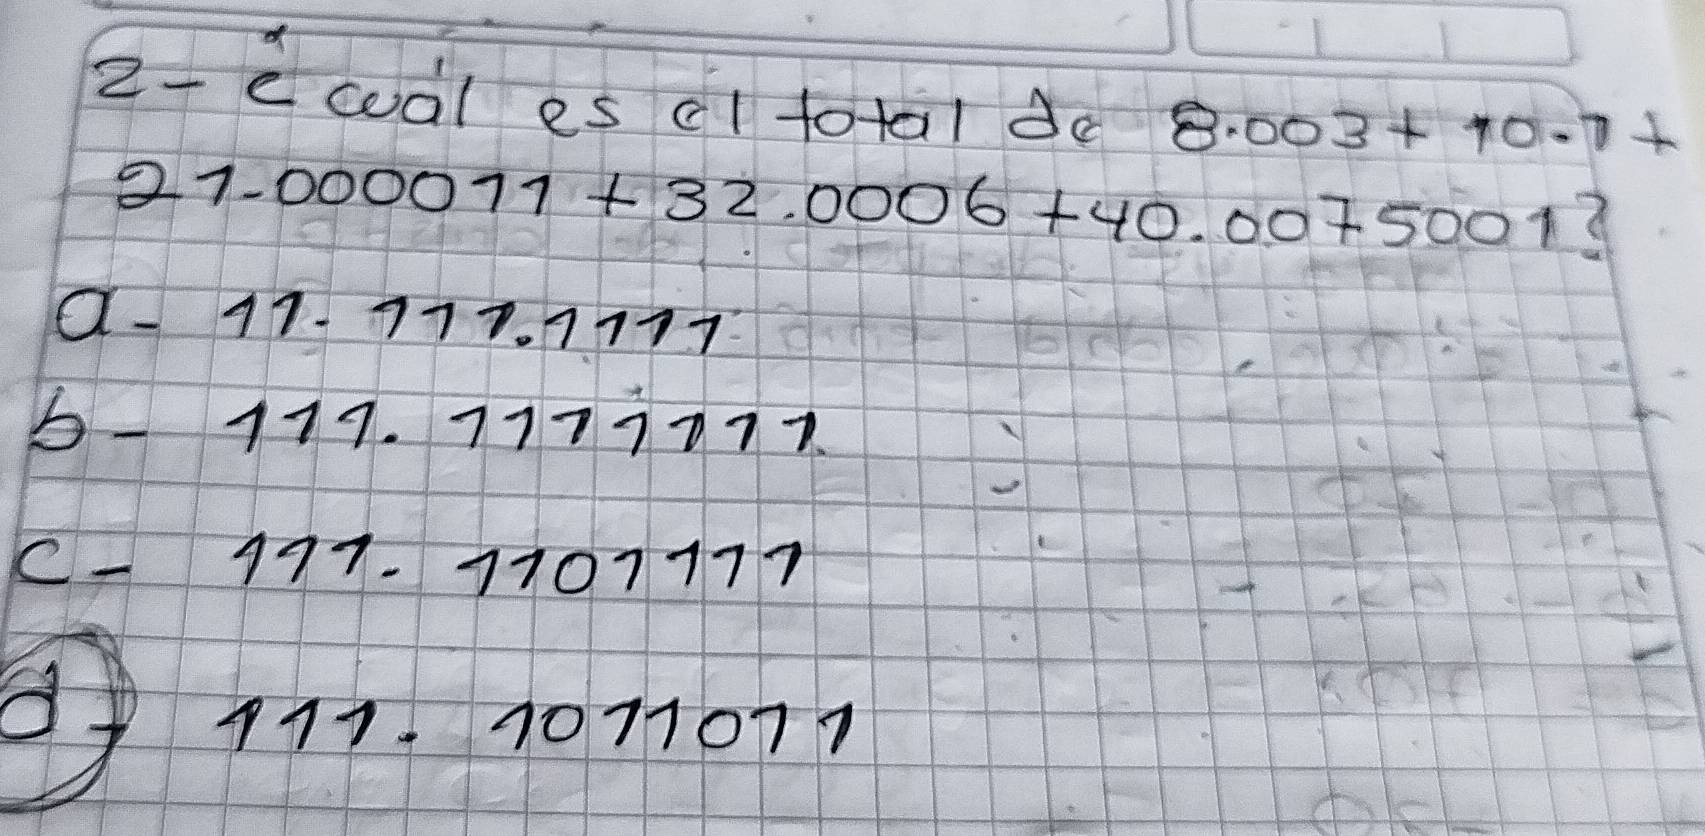 2- ¿cuál es el total de 8.003 + 10.1 +
21.000011 + 32.0006 + 40.0075001?
a- 11.111.1111
b- 111.1111111
c- 111.1101111
d- 111.1011011